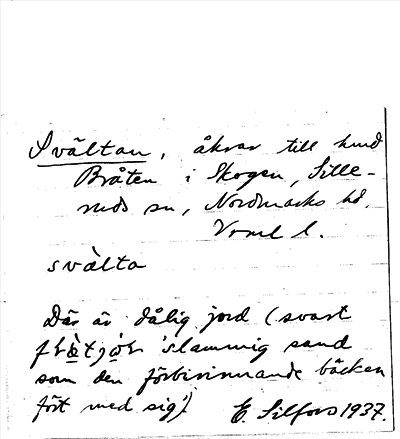 Svältan, åkrar till hmd
Bråten i Skogen, Sille-
ruds sn, Nordmarks hd,
Vrml l.
svä̀lta
Där är dålig jord (svart
'slammig sand
som den förbirinnande bäcken
fört med sig').
E. Silfors 1937.